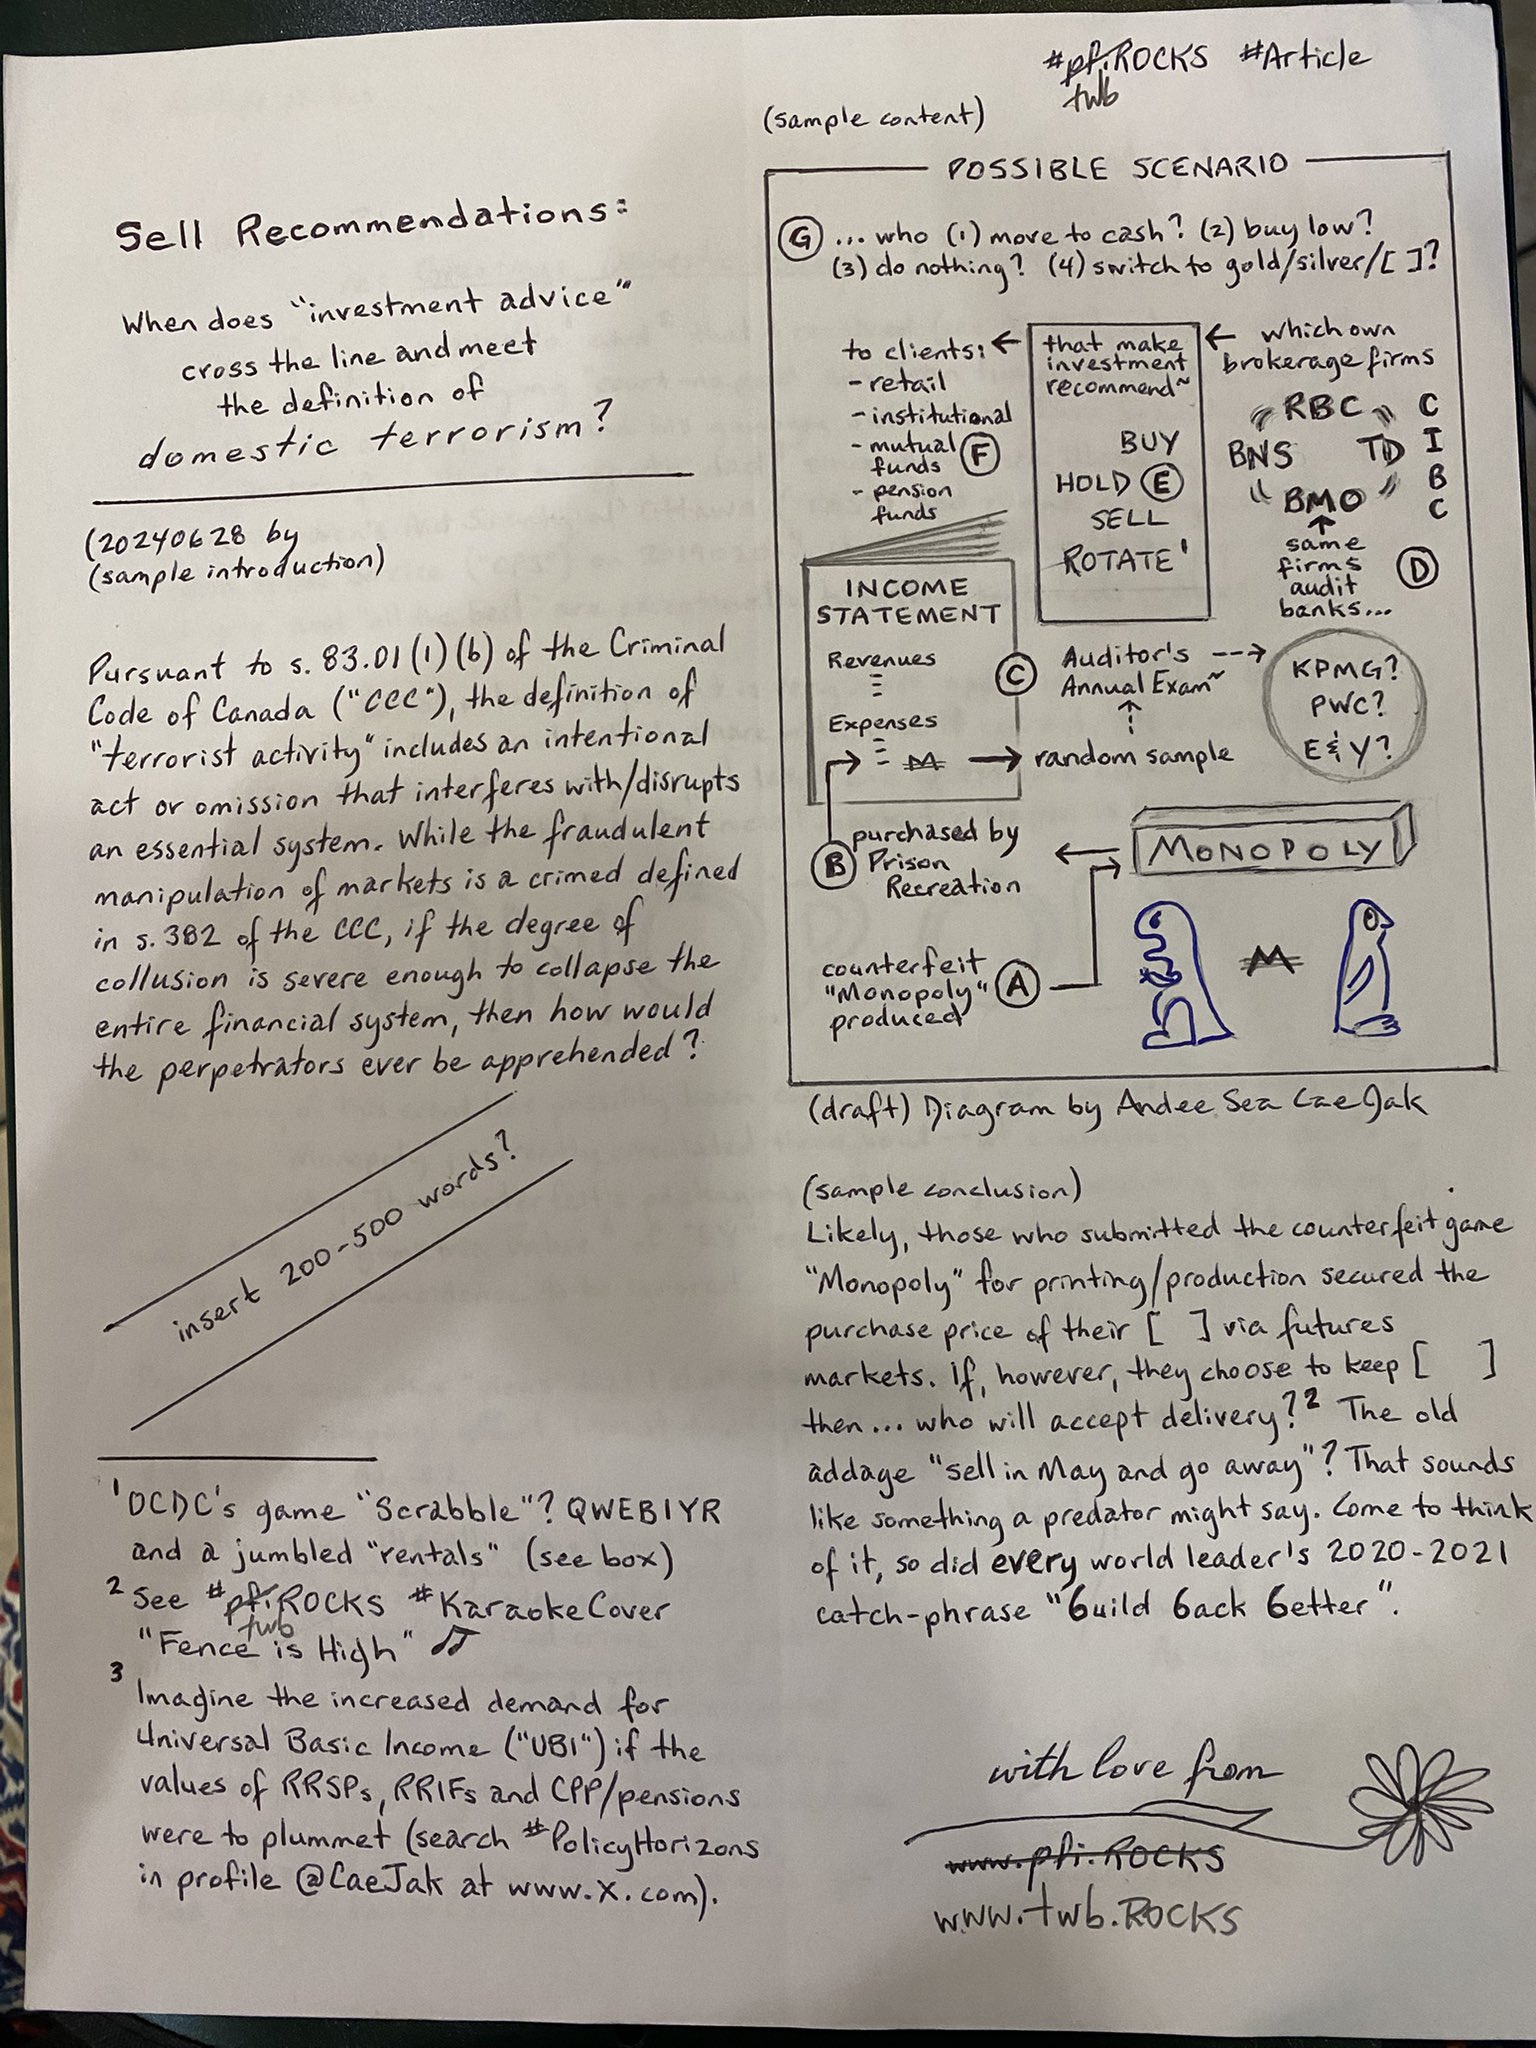 #pfi.ROCKS #Article
twb
Sell Recommendations:
When does "investment advice"
cross the line and meet
the definition of
domestic terrorism?
(20240628 by
(sample introduction)
Pursuant to s. 83.01 (1) (b) of the Criminal
Code of Canada ("CCC"), the definition of
"terrorist activity" includes an intentional
act or omission that interferes with/disrupts
an essential system. While the fraudulent
manipulation of markets is a crimed defined
in s. 382 of the CCC, if the degree of
collusion is severe enough to collapse the
entire financial system, then how would
the perpetrators ever be apprehended?
insert 200-500 words?
1 OCDC's game "Scrabble"? QWEBIYR
and a jumbled "rentals" (see box)
2 See #pfi.ROCKS #KaraokeCover
twb
"Fence is High"
3 Imagine the increased demand for
Universal Basic Income ("UBI") if the
values of RRSPs, RRIFs and CPP/pensions
were to plummet (search #PolicyHorizons
in profile @CaeJak at www.x.com).
(sample content)
POSSIBLE SCENARIO
G ... who (1) move to cash? (2) buy low?
(3) do nothing? (4) switch to gold/silver/[ ]?
to clients:
- retail
- institutional
- mutual
funds
- pension
funds
F
that make
investment
recommend~
BUY
HOLD E
SELL
ROTATE 1
which own
brokerage firms
RBC
BNS TD
BMO
C
I
B
C
same
firms
audit
banks...
D
INCOME
STATEMENT
Revenues
Expenses
M
C
Auditor's
Annual Exam~
random sample
KPMG?
PWC?
E&Y?
B purchased by
Prison
Recreation
MONOPOLY
counterfeit
"Monopoly" A
produced
M
(draft) Diagram by Andee Sea CaeJak
(sample conclusion)
Likely, those who submitted the counterfeit game
"Monopoly" for printing/production secured the
purchase price of their [ ] via futures
markets. If, however, they choose to keep [ ]
then... who will accept delivery?2 The old
addage "sell in May and go away"? That sounds
like something a predator might say. Come to think
of it, so did every world leader's 2020-2021
catch-phrase "6uild 6ack 6etter".
with love from
www.pfi.ROCKS
www.twb.ROCKS